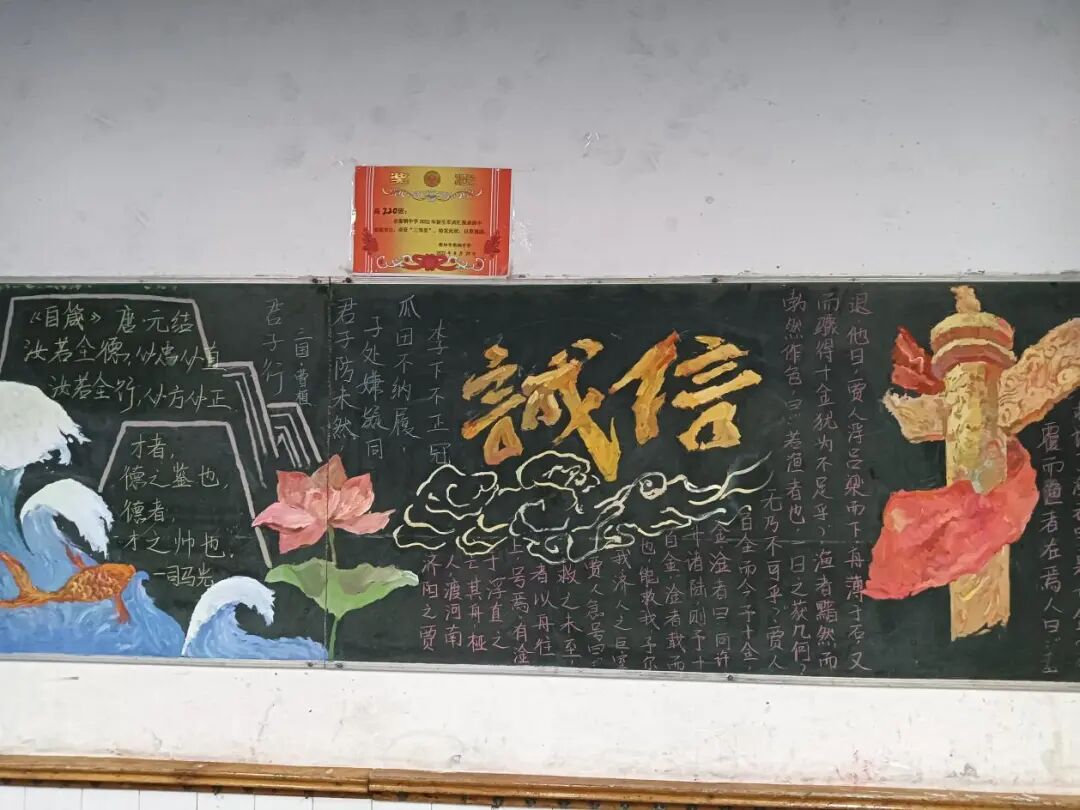 奖 状
高220班:
《自箴》唐·元结
汝若全德,必忠必直
汝若全行,必方必正.
才者,
德之资也,
德者,
才之帅也,
—司马光
君子行
三国·曹植
君子防未然
不处嫌疑间
瓜田不纳履,
李下不正冠
誠信
济阳之贾
人渡河南
亡其舟桠
于浮苴之
上号焉,有渔
者以舟往
救之未至
贾人急号曰:
我济人之巨室
也能救我予尔
百金渔者载而
升诸陆则予十
金渔者曰:向许
百金而今予十金,
无乃不可乎?贾人
勃然作色,曰:"若渔者也一日之获几何?
而骤得十金犹为不足乎?渔者黯然而
退他日,贾人浮吕梁而下舟薄于石又
覆而渔者在焉人曰:"